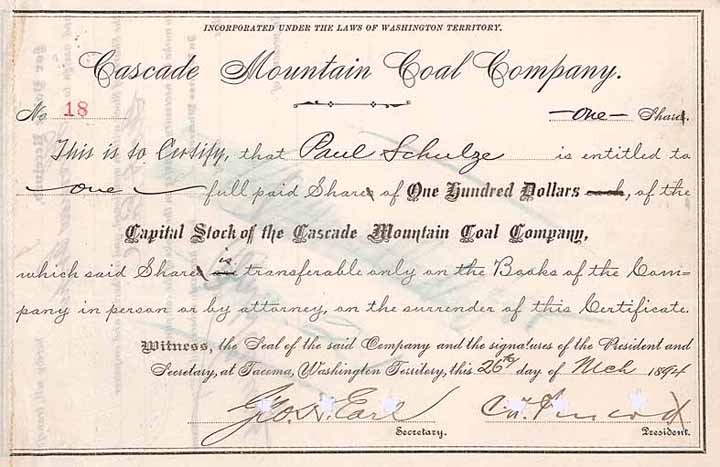 INCORPORATED UNDER THE LAWS OF WASHINGTON TERRITORY.
Cascade Mountain Coal Company.
No 18 —one— Share
This is to Certify, that Paul Schulze is entitled to
one full paid Share of One Hundred Dollars each, of the
Capital Stock of the Cascade Mountain Coal Company,
is
which said Share transferable only on the Books of the Com=
pany in person or by attorney, on the surrender of this Certificate.
Witness, the Seal of the said Company and the signatures of the President and
Secretary, at Tacoma, Washington Territory, this 26th day of Mch 1894
Geo. H. Earl
Secretary. President.